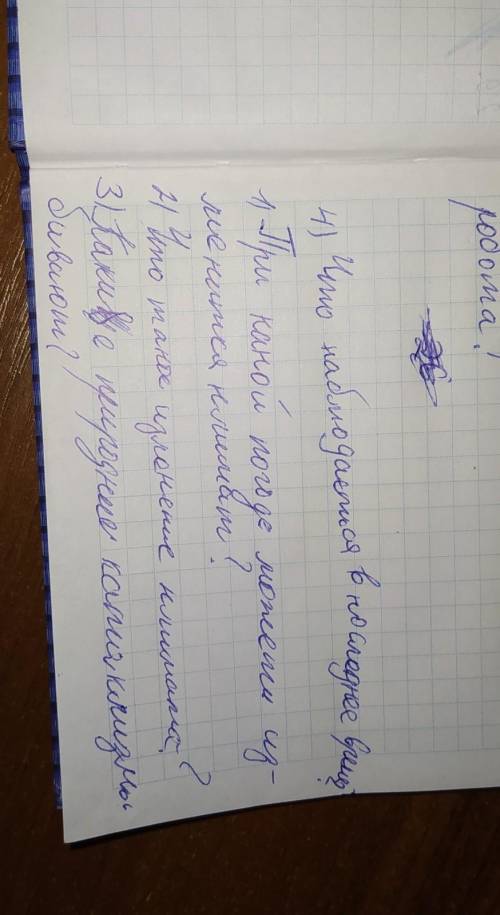 работа!
4) Что наблюдается в последнее время?
1) При какой погоде может из-
менится климат?
2) Что такое изменение климата?
3) Какие природные катаклизмы
бивают?